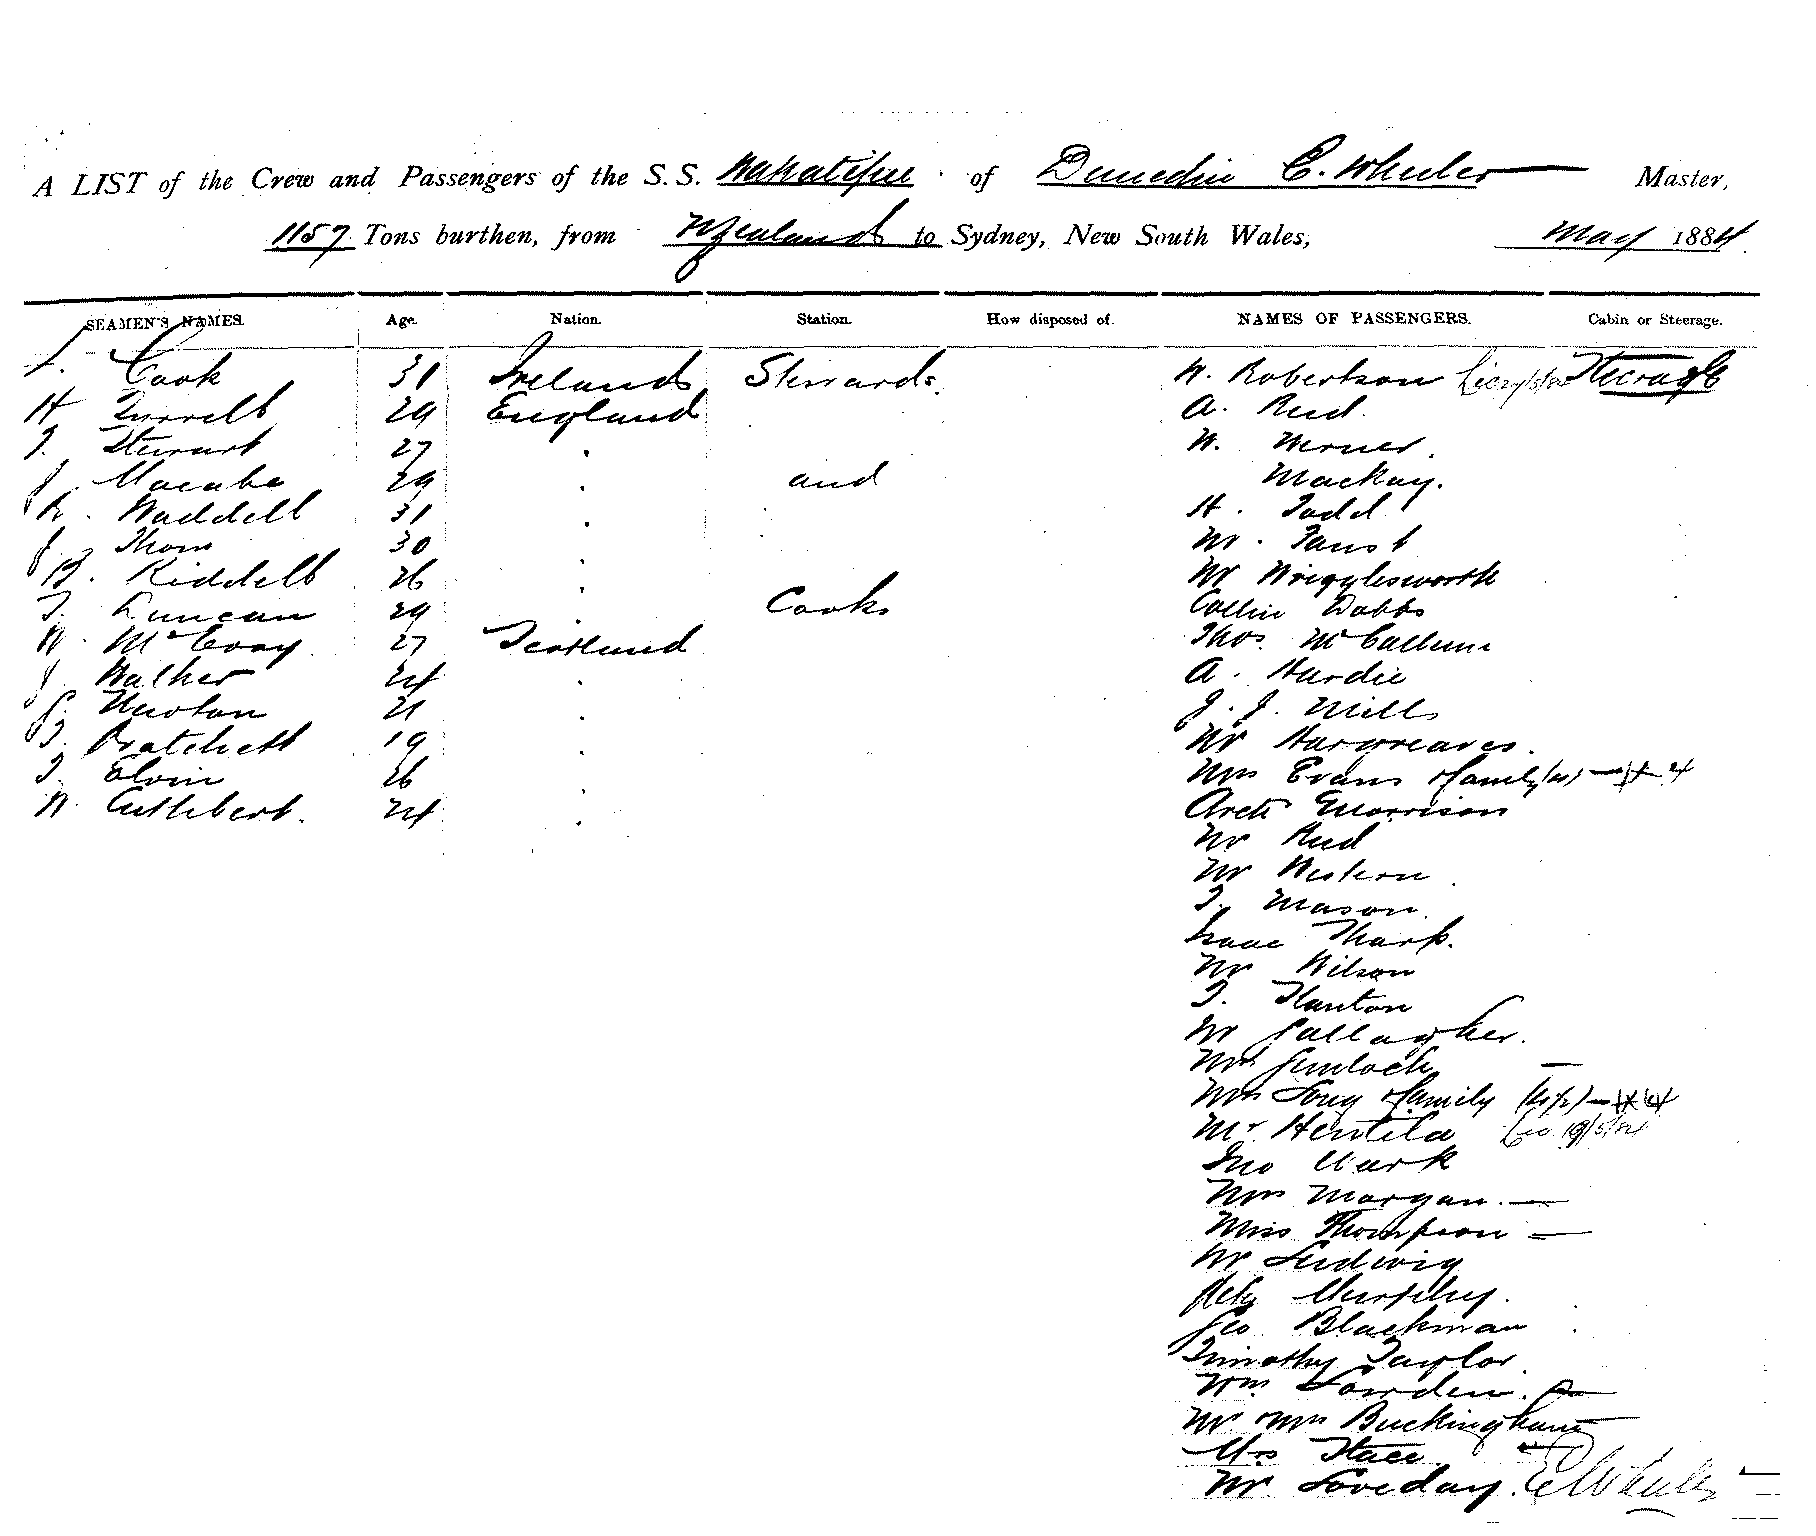 A LIST of the Crew and Passengers of the S.S. Wakatipu of Dunedin C. Wheeler Master,
1157 Tons burthen, from NZealand to Sydney, New South Wales, May 1884
SEAMEN'S NAMES. Age. Nation. Station. How disposed of. NAMES OF PASSENGERS. Cabin or Steerage.
Cook 31 Ireland Stewards W. Robertson Steerage
H 29 England A. Reid
Stewart 27 W. Werner
J. Macabe 29 and Mackay.
R. Waddell 31 H. Todd
J. Thom 30 Mr. Faust
Riddell 26 Mr Wrigglesworth
Duncan 29 Cooks Collin Dobbs
W. McEvoy 27 Scotland Thos. McCallum
J. Walker 24 A. Hardie
Newton 21 J. J. Mills
Pratchett 19 Mr Hargreaves.
Elvin 26 Mrs Evans & family (4) 4
W. Cuthbert. 24 Arch Morrison
Mr Reid
Mr Western
Mason
Isaac Tharp.
Mr Wilson
Stanton
Mr Gallagher.
Mrs
Mrs Long & family
Mr
Jno Clark
Mrs Morgan.
Miss Thompson
Mr Ludwig
Murphy.
Geo Blackman
Timothy Taylor
Wm Lowden.
Mr & Mrs Buckingham
Mrs Stace
Mr Loveday. C Wheeler